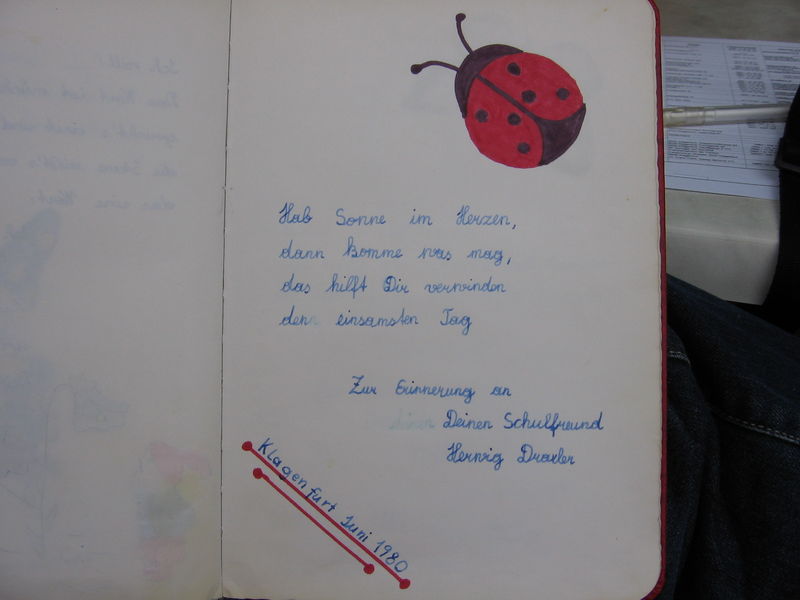 Hab Sonne im Herzen,
dann komme was mag,
das hilft Dir verwinden
den einsamsten Tag
Zur Erinnerung an
Deinen Schulfreund
Herwig Draxler
Klagenfurt Juni 1980